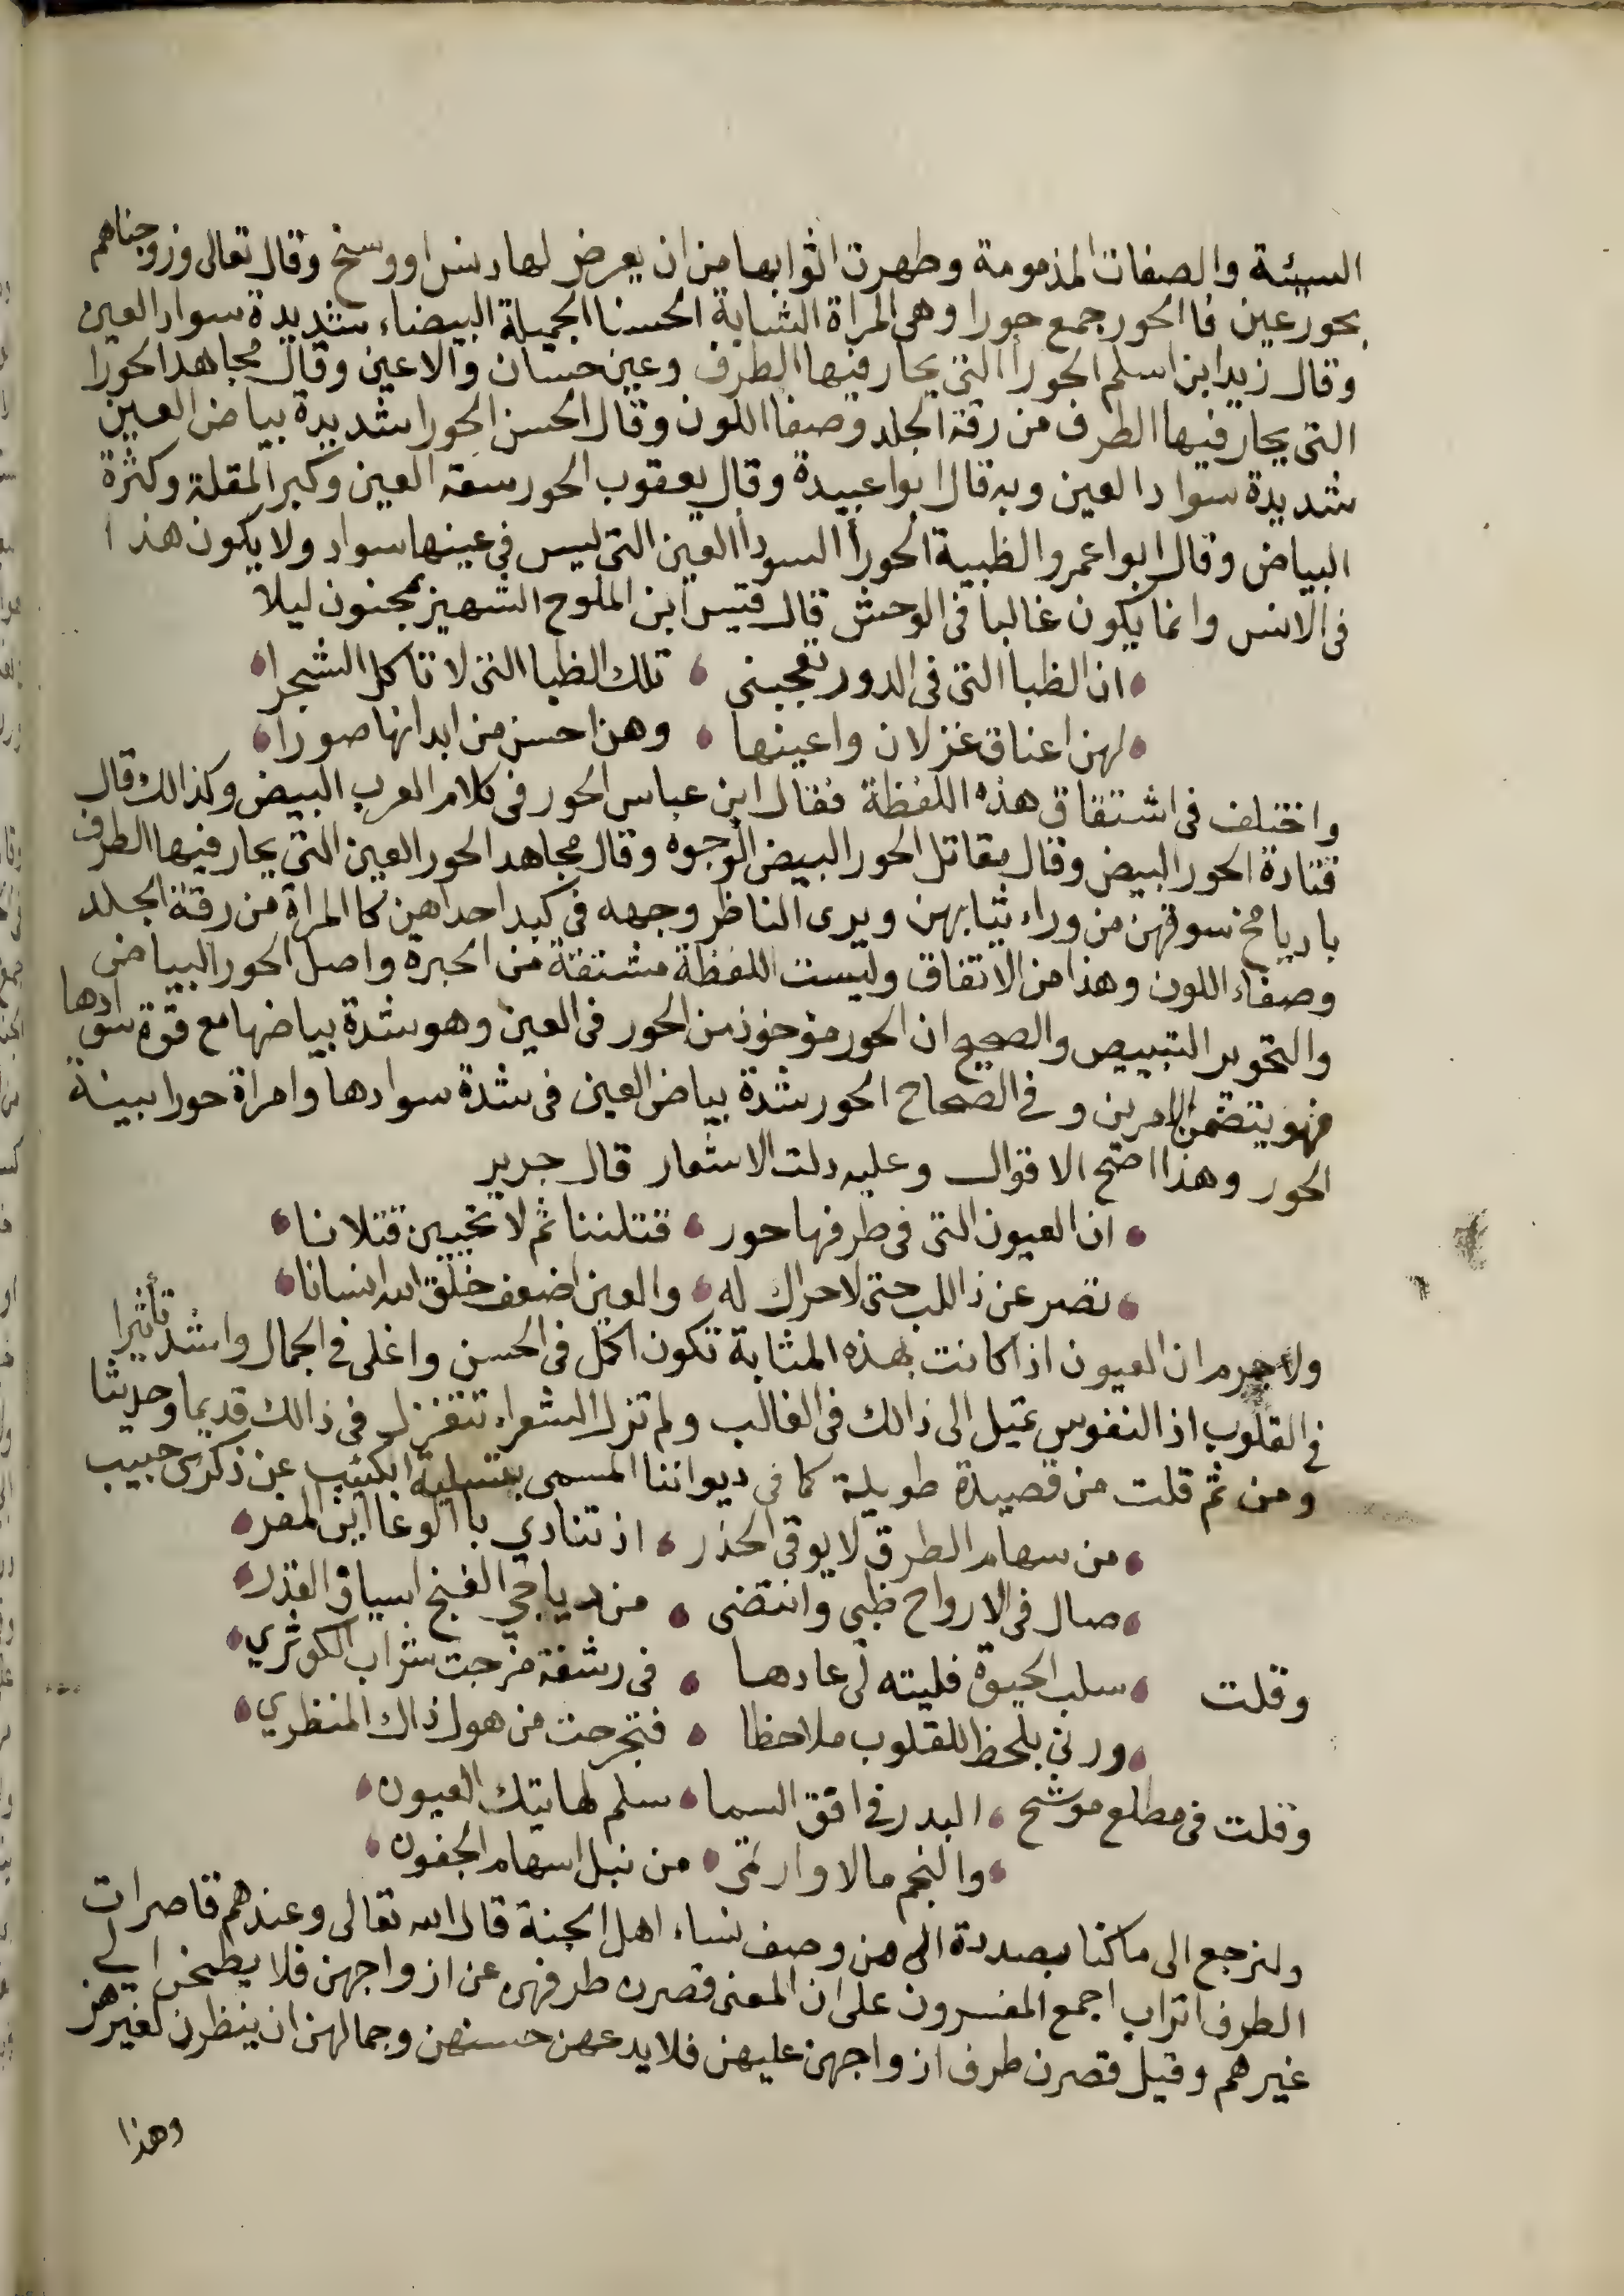 السيئة والصفات المذمومة وطهرت اثوابها من ان يعرض لها دنس او وسخ وقال تعالى وزوجناهم
بحور عين فا الحور جمع حورا وهي المراة الشابة الحسنا الجميلة البيضاء شديدة سواد العين
وقال زيد ابن اسلم الحورا التي يحار فيها الطرف وعين حسان والاعين وقال مجاهد الحورا
التي يحار فيها الطرف من رقة الجلد وصفا اللون وقال الحسن الحورا شديدة بياض العين
شديدة سواد العين وبه قال ابوا عبيدة وقال يعقوب الحور سعة العين وكبر المقلة وكثرة
البياض وقال ابوا عمر والظبية الحورا السودا العين التي ليس في عينها سواد ولا يكون هذا
في الانس وانما يكون غالبا في الوحش قال قيس ابن الملوح الشهيز بمجنون ليلا
ان الظبا التي في الدور تعجبني تلك الظبا التي لا تاكل الشجرا
لهن اعناق غزلان واعينها وهن احسن من ابدانها صورا
واختلف في اشتقاق هذه اللفظة فقال ابن عباس الحور في كلام العرب البيض وكذالك قال
قتادة الحور البيض وقال مقاتل الحور البيض الوجوه وقال مجاهد الحور العين التي يحار فيها الطرف
باديا مخ سوقهن من وراء ثيابهن ويرى الناظر وجهه في كبد احداهن كا المراة من رقة الجلد
وصفاء اللون وهذا من الاتفاق وليست اللفظة مشتقة من الحيرة واصل الحور البياض
والتحوير التبييض والصحيح ان الحور مؤخوذ من الحور في العين وهو شدة بياضها مع قوة سوادها
فهو يتضمن الامرين وفي الصحاح الحور شدة بياض العين في شدة سوادها وامراة حورا بينة
الحور وهذا اضح الاقوال وعليه دلت الاشعار قال جرير
ان العيون التي في طرفها حور قتلننا ثم لا تحيين قتلانا
تصرعن ذا اللب حتى لاحراك له والعين اضعف خلق الله انسانا
ولاجرم ان العيون اذا كانت بهذه المثابة تكون اكمل في الحسن واغلى في الجمال واشد تأثيرا
في القلوب اذ النفوس تميل الى ذالك في الغالب ولم تزل الشعراء تتغزل في ذالك قديما وحديثا
ومن ثم قلت من قصيدة طويلة كما في ديواننا المسمى بتسلية الكئيب عن ذكرى حبيب
من سهام الطرق لا يوقى الحذر اذ تنادي با الوغا اين المفر
صال في الارواح ظبي وانتضى من دياجي الغنج اسياق القدر
وقلت سلب الحيوة فليته لي عادها في رشفة مزجت شراب الكوثري
ورنى بلحظ للقلوب ملاحظا فتجرحت من هول ذاك المنظري
وقلت في مطلع موشح البدر في افق السما سلم لهاتيك العيون
والنجم مالا وارتمى من نبل اسهام الجفون
ولنرجع الى ماكنا بصددة الى من وصف نساء اهل الجنة قال الله تعالى وعندهم قاصرات
الطرف اتراب اجمع المفسرون على ان المعنى قصرن طرفهن عن ازواجهن فلا يطمحن الي
غيرهم وقيل قصرن طرف ازواجهن عليهن فلا يدعهن حسنهن وجمالهن ان ينظرن لغيرهن
وهذا